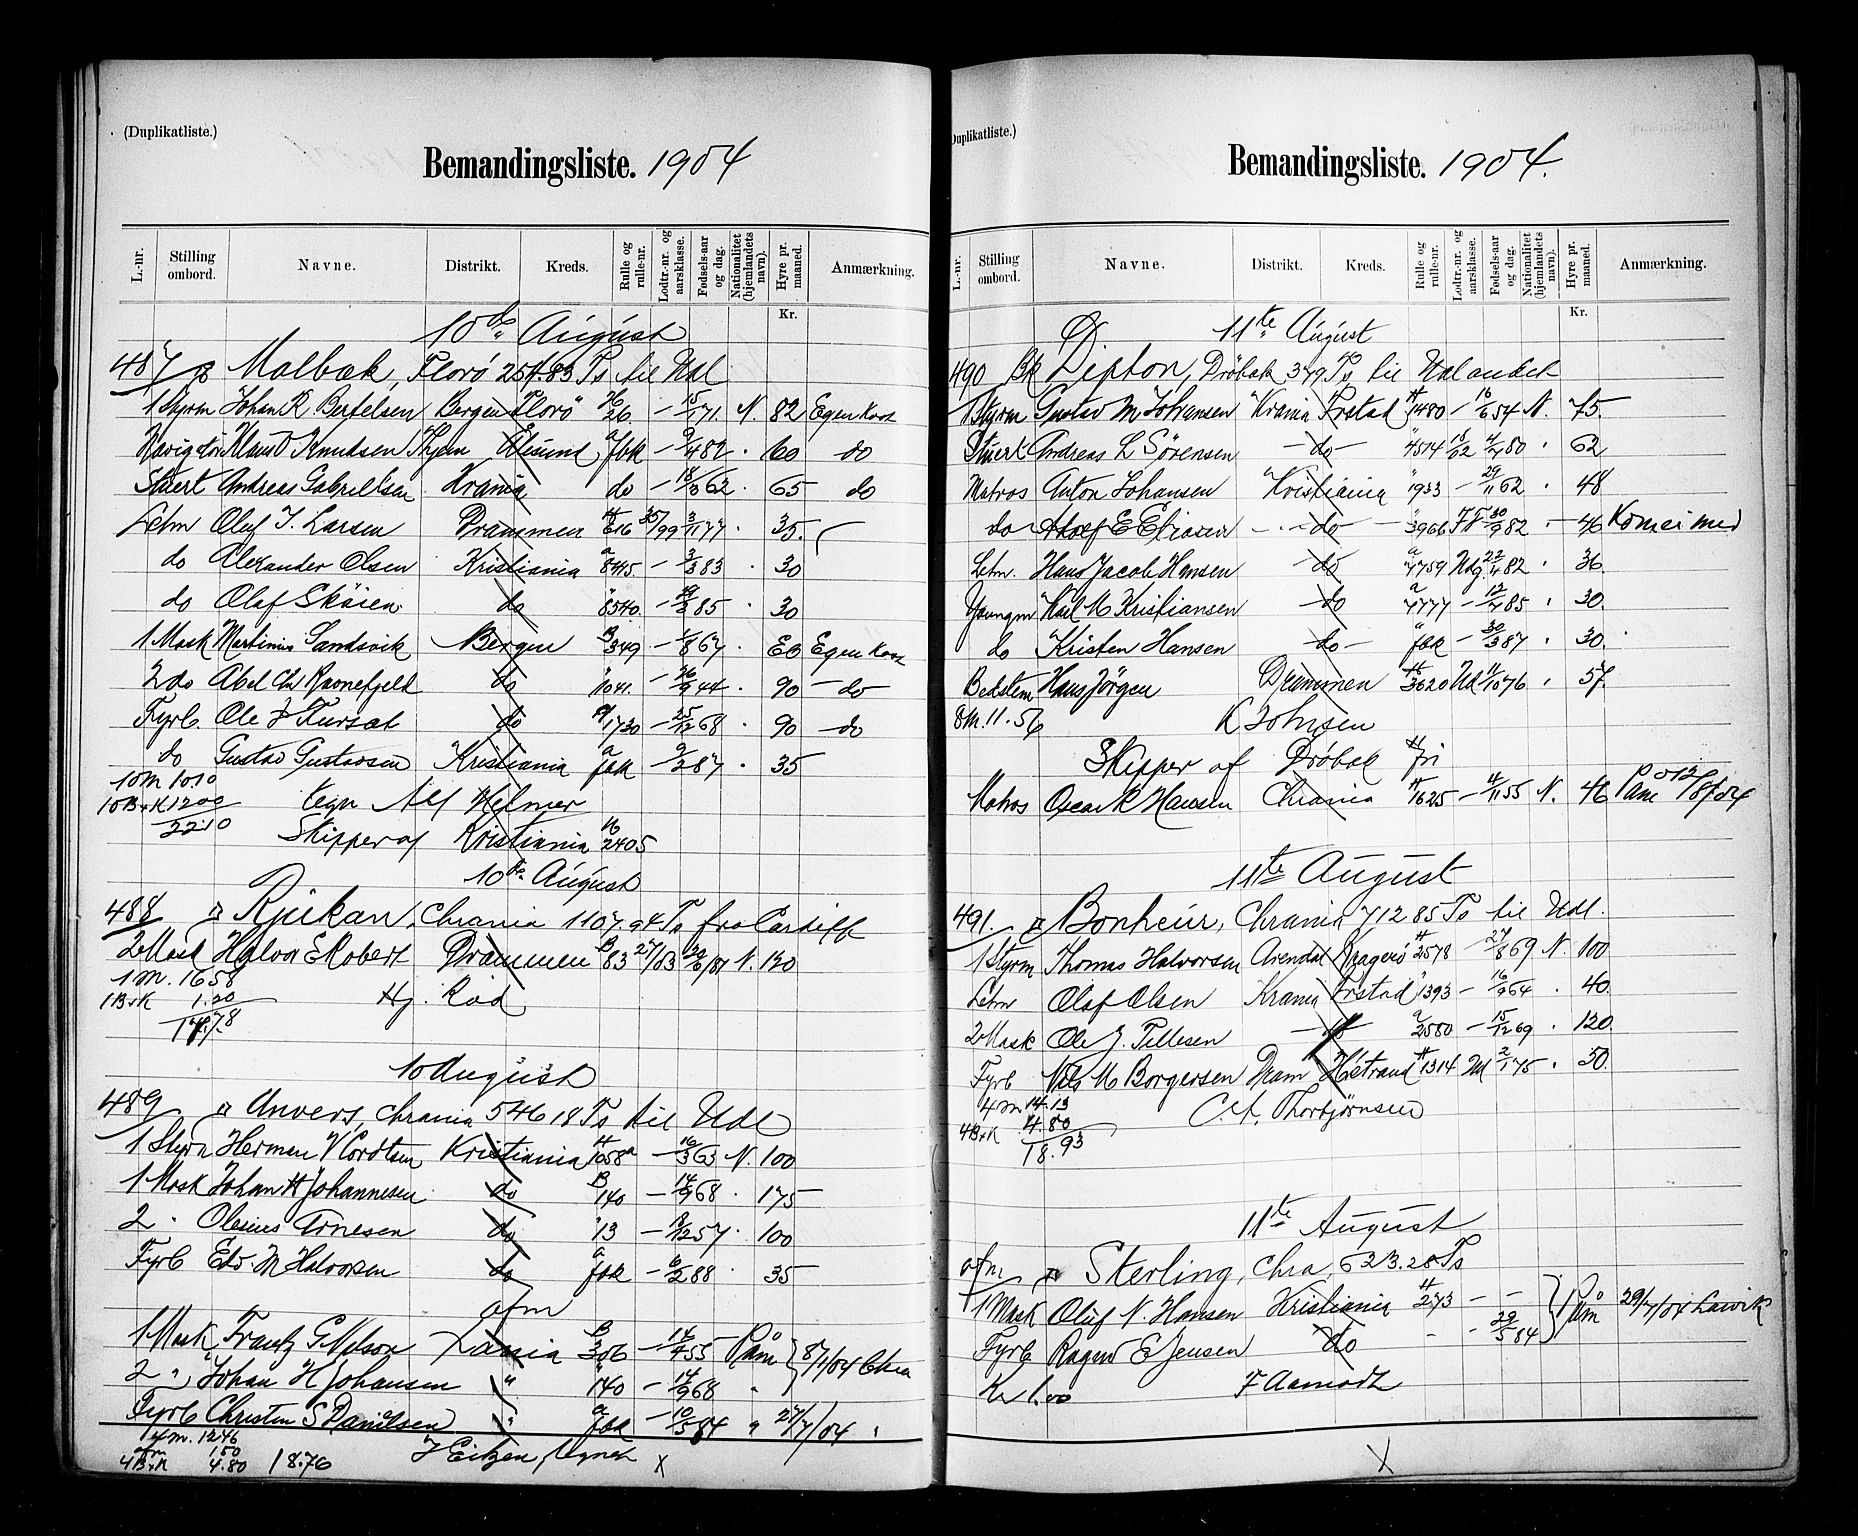 (Duplikatliste.)
Bemandingsliste. 1904
L.-nr. Stilling ombord. Navne. Distrikt. Kreds. Rulle og rulle-nr. Lodtr.-nr. og aarsklasse. Fødsels-aar og dag. Nationalitet (hjemlandets navn). Hyre pr. maaned. Anmærkning.
Kr.
10de August
487 Malbæk, Florø 254.83 Ts til Udl
1 Styrm Johan R Bertelsen Bergen Florö 26 - 15/1 71. N. 82 Egen Kost
Klaus Knudsen Thjem Ålesund fbk - 9/4 82 . 60 do
Stuert Andreas Gabrielsen Krania do - 18/3 62 . 65 do
Letm Oluf T. Larsen Drammen 616 35/99 3/11 77 . 35.
do Alexander Olsen Kristiania a 8445 - 3/3 83 . 30
do Olaf Skøien do " 8540 - 85 . 30
1 Mask Martinius Sandsvik Bergen B 349 - 1/8 67 . Egen Kost
2 do Abel Chr Ravnefjeld do " 1041. - 26/9 44 . 90 - do
Fyrb. Ole J Fursat do 1730 - 25/12 68 . 90 - do
do Gustav Gustavsen Kristiania a fbk - 9/2 87 . 35
10 M 10.10
10 B+K 12.00
22.10
tegn Alf Helmer
Skipper af Kristiania 2405
10de August
488 Rjukan, Chrania 1107.94 Ts fra Cardiff
2 Mask Halvor E Robert Drammen B 83 27/03 20/6 81 N. 120
1 M. 16 58
1 B+K 1.20
17.78
Hj. Rød
10 August
489 Anvers, Chrania 546 18 Ts til Udl
1 Styrm Herman N Cordtsen Kristiania H 1058a - 16/3 63 N. 100
1 Mask Johan H Johannesen do B 140 - 14/9 68 . 175
2 " Olesius Arnesen do " 13 - 8/12 57 . 100
Fyrb Edv. M Halvorsen do a fbk - 6/2 88 . 35
afm
1 Mask Frantz G Nelson Krania B 306 - 14/4 55 Påm } 8/1/04 Chra
2 " Johan H Johansen " " 140 - 14/9 68 "
Fyrb Christen S Danielsen " a fbk - 10/5 84 " 27/7/04 "
4 m. 12.46
afm 1.50
4 B+K 4.80 18.76
X
(Duplikatliste.)
Bemandingsliste. 1904.
L.-nr. Stilling ombord. Navne. Distrikt. Kreds. Rulle og rulle-nr. Lodtr.-nr. og aarsklasse. Fødsels-aar og dag. Nationalitet (hjemlandets navn). Hyre pr. maaned. Anmærkning.
Kr.
11te August
490 Bk Dipton, Dröbak 379 Ts til Udlandet
1 Styrm Gustav M Johansen Krania Frstad H 1480 - 16/6 54 N. 75.
Stuert Andreas L Sörensen - do - " 4514 18/02 4/7 80 . 62
Matros Anton Johansen Kristiania " 1933 - 29/11 62 . 48
do Adolf E Eliasen - do - " 3966 30/9 82 . - 46 Kom ei med
Letm. Hans Jacob Hansen - do a 7759 Udg 22/11 82 . 36.
Youngm Karl M Kristiansen - do a 7777 - 12/7 85 . 30.
do Kristen Hansen - do - " fbk - 30/3 87 . 30.
Bedstem Hans Jörgen Drammen H 3620 Ud 11/10 76 . 57.
8 M. 11.56 K Johnsen
Skipper af Dröbak H fri
Matros Oscar K Hansen Chrania H 1625 - 4/11 55 N. 46 Påm 12/8/04
11te August
491. Bonheur, Chrania 712 85 Ts til Udl.
1 Styrm Thomas Halvorsen Arendal Kragerö H 2578 27/8 69 N. 100
Letm Olaf Olsen Krania Frstad " 1393 - 16/9 64 . 40.
2 Mask Ole J. Tellesen - do a 2580 - 15/12 69 . 120
Fyrb Nils M Borgersen Dram Hstrand H 1314 Ud 2/1 75 . 50.
4 m 14.13
4 B+K 4.80
18.93
C. A. Thorbjørnsen
11te August
afm Sterling, Chra, 623.28 Ts
1 Mask Oluf N. Hansen Kristiania H 273 - - } Påm 29/7/04 Larvik
Fyrb Ragnv E Jensen do - - 29/5 84
Kr 1.00 F Aamodt
X